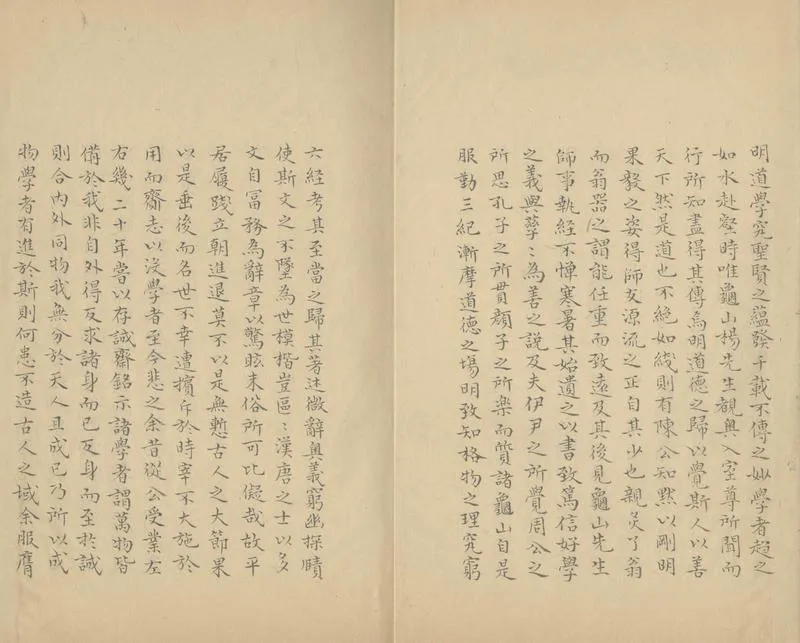 明道學究聖賢之蘊發千載不傳之妙學者趨之
如水赴壑時唯龜山楊先生覩奧入室尊所聞而
行所知盡得其傳為明道德之歸以覺斯人以善
天下然是道也不絕如綫則有陳公知默以剛明
果毅之姿得師友源流之正自其少也親炙了翁
而翁器之謂能任重而致遠及其後見龜山先生
師事執經不憚寒暑其始遺之以書致篤信好學
之義與孳〻為善之說及夫伊尹之所覺周公之
所思孔子之所貫顏子之所樂而質諸龜山自是
服勤三紀漸摩道德之場明致知格物之理究窮
六經考其至當之歸其著述微辭奧義窮幽探賾
使斯文之不墜為世模楷豈區〻漢唐之士以多
文自冨務為辭章以驚眩末俗所可比儗哉故平
居履踐立朝進退莫不以是無慙古人之大節果
以是垂後而名世不幸遭擯斥於時宰不大施於
用而齎志以沒學者至今悲之余昔從公受業左
右幾二十年嘗以存誠齋銘示諸學者謂萬物皆
備於我非自外得反求諸身而已反身而至於誠
則合內外同物我無分於天人且成已乃所以成
物學者有進於斯則何患不造古人之域余服膺